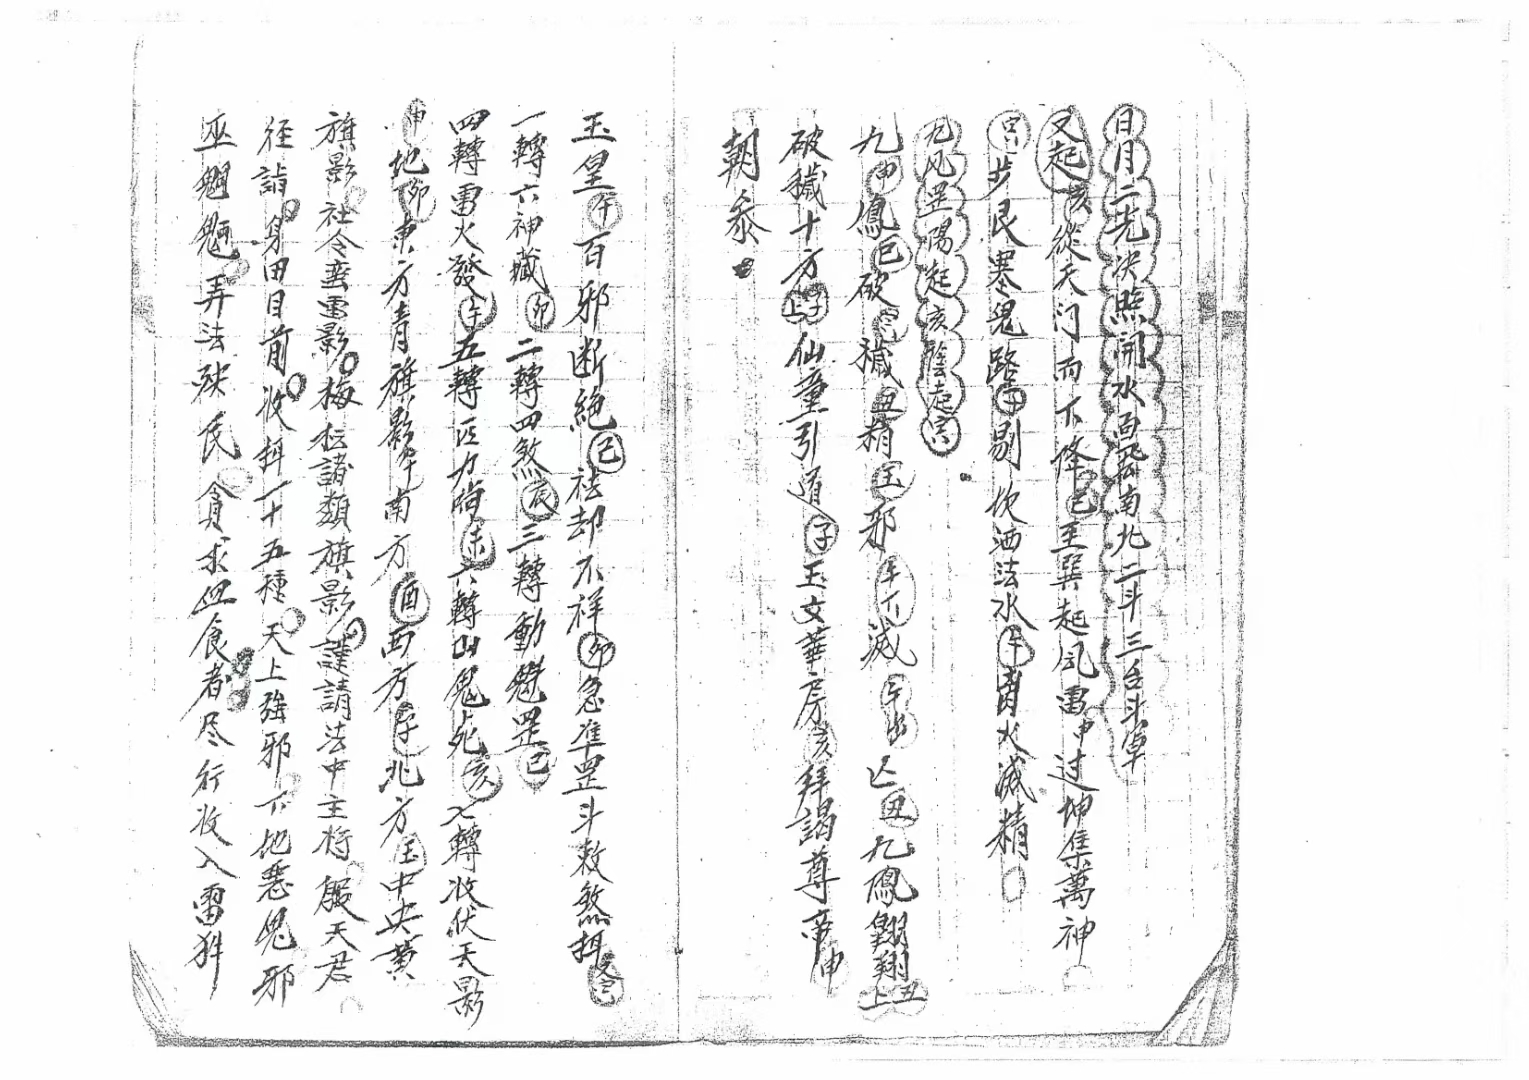 日月二光決照開水面飛南北二斗三台斗罩
又起亥從天门而下降巳至巽起风雷申过坤集萬神
步艮塞鬼路剔坎洒法水午离火滅精
九凤罡陽起亥陰起寅
九申鳳巳破穢丑精邪不滅亡丑九鳳翱翔丑上
破穢十方子上仙童引道子玉文華房亥拜謁尊帝申
朝叅
玉皇午百邪断絕巳祛却不祥卯急準罡斗敕煞
一轉六神藏卯二轉四煞辰三轉動魁罡巳
四轉雷火發午五轉未六轉山鬼死亥七轉收伏天影
申地卯東方青旗影午南方酉西方子北方中央黄
旗影社令雷影诸類旗影謹請法中主将殷天君
径詣身田目前收抖一十五種天上強邪下地惡鬼邪
巫魍魉弄法殃民貪求血食者尽行收入雷